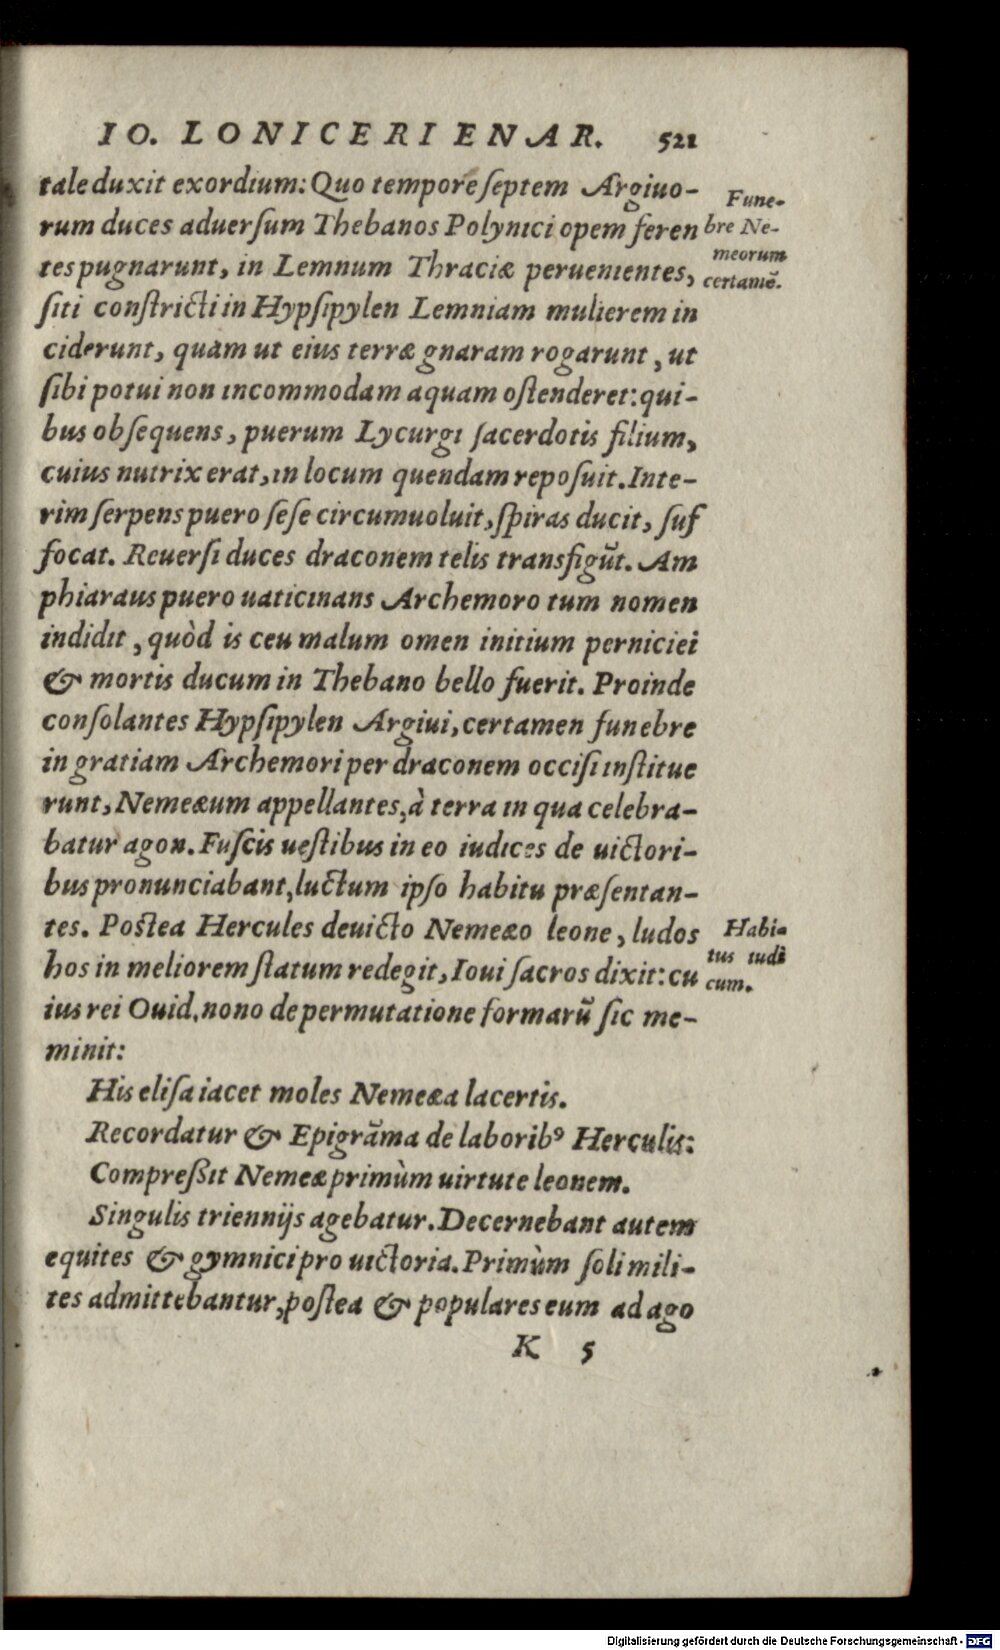 IO. LONICERI ENAR. 521
tale duxit exordium: Quo tempore ſeptem Argiuo-
rum duces aduerſum Thebanos Polynici opem feren
tes pugnarunt, in Lemnum Thraciæ peruenientes,
ſiti conſtricti in Hypſipylen Lemniam mulierem in
ciderunt, quam ut eius terræ gnaram rogarunt, ut
ſibi potui non incommodam aquam oſtenderet: qui-
bus obſequens, puerum Lycurgi ſacerdotis filium,
cuius nutrix erat, in locum quendam repoſuit. Inte-
rim ſerpens puero ſeſe circumuoluit, ſpiras ducit, ſuf
focat. Reuerſi duces draconem telis transfigūt. Am
phiaraus puero uaticinans Archemoro tum nomen
indidit, quòd is ceu malum omen initium perniciei
& mortis ducum in Thebano bello fuerit. Proinde
conſolantes Hypſipylen Argiui, certamen funebre
in gratiam Archemori per draconem occiſi inſtitue
runt, Nemeæum appellantes, à terra in qua celebra-
batur agon. Fuſcis ueſtibus in eo iudices de uictori-
bus pronunciabant, luctum ipſo habitu præſentan-
tes. Poſtea Hercules deuicto Nemeæo leone, ludos
hos in meliorem ſtatum redegit, Ioui ſacros dixit: cu
ius rei Ouid. nono de permutatione formarū ſic me-
minit:
His eliſa iacet moles Nemeæa lacertis.
Recordatur & Epigrāma de laborib⁹ Herculis:
Compreßit Nemeæ primùm uirtute leonem.
Singulis triennijs agebatur. Decernebant autem
equites & gymnici pro uictoria. Primùm ſoli mili-
tes admittebantur, poſtea & populares eum ad ago
K 5
Fune-
bre Ne-
meorum
certamē.
Habi-
tus iudi
cum.
Digitalisierung gefördert durch die Deutsche Forschungsgemeinschaft - DFG